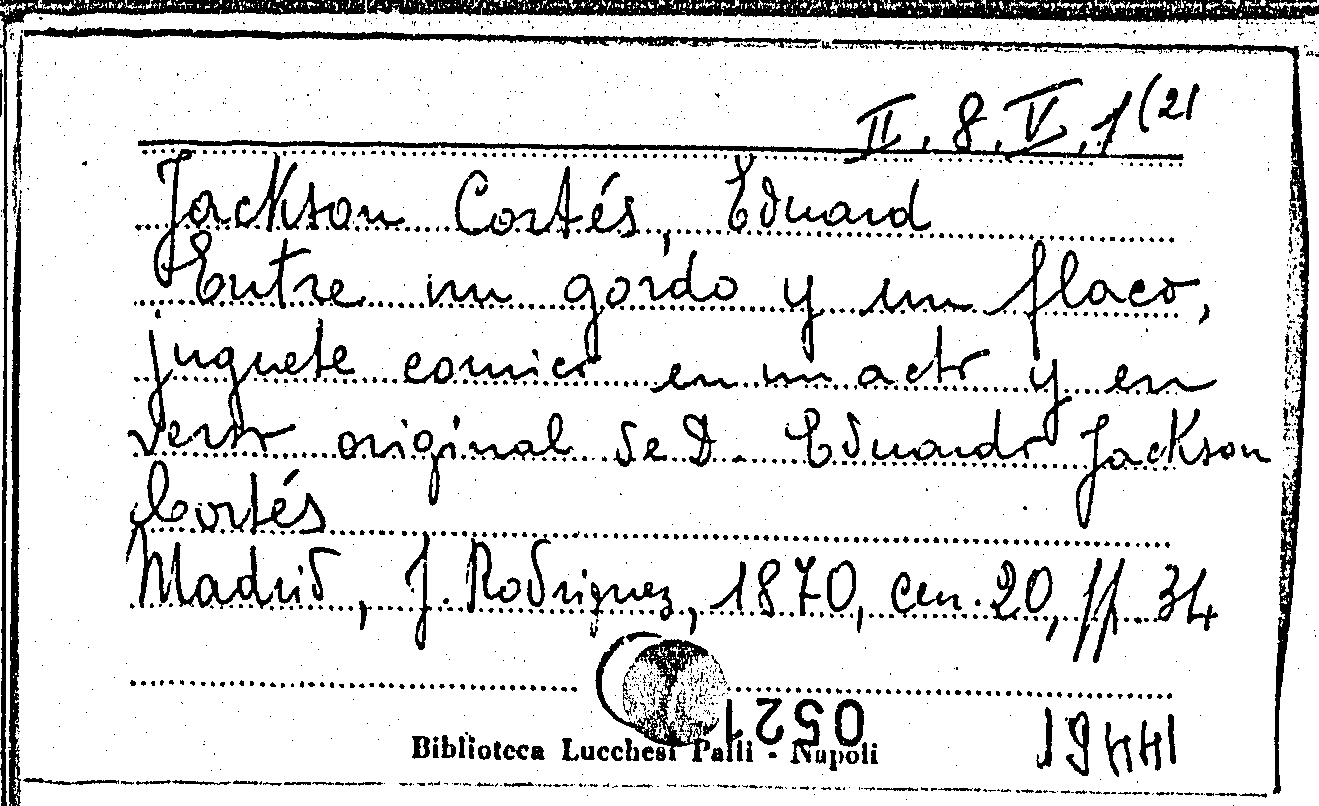 II. 8. V. 1 (21
Jackson Cortés, Eduard
Entre un gordo y un flaco,
juguete comico en un acto y en
verso original de D. Eduardo Jackson
Cortés
Madrid, J. Rodriguez, 1870, cm. 20, ff. 34
0521
Biblioteca Lucchesi Palli - Napoli